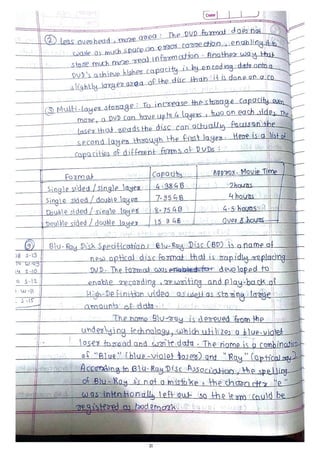 Date
② Less overhead, more area : The DVD format does not
waste as much space on error correction, enabling it to
store much more real information. Another way that
DVD's achieve higher capacity is by encoding data onto a
slightly larger area of the disc than it is done on a CD
③ Multi-layer storage : To increase the storage capacity even
more, a DVD can have up to 4 layers, two on each side. The
laser that reads the disc can actually focus on the
second layer through the first layer. Here is a list of
capacities of different forms of DVDs :
Format Capacity Approx. Movie Time
Single sided / single layer 4.38 GB 2 hours
Single sided / double layer 7.95 GB 4 hours
Double sided / single layer 8.75 GB 4.5 hours
Double sided / double layer Over 8 hours
⑨ Blu-Ray Disk Specifications : Blu-Ray Disc (BD) is a name of
new optical disc format that is rapidly replacing
DVD. The format was developed to
enable recording, rewriting and play-back of
High-Definition video as well as storing large
amounts of data.
The name Blu-ray is derived from the
underlying technology, which utilizes a blue-violet
laser to read and write data. The name is a combination
of "Blue" (blue-violet laser) and "Ray" (optical ray)
According to Blu-Ray Disc Association, the spelling
of Blu-Ray is not a mistake, the character "e"
was intentionally left out so the term could be
registered as trademark.
21